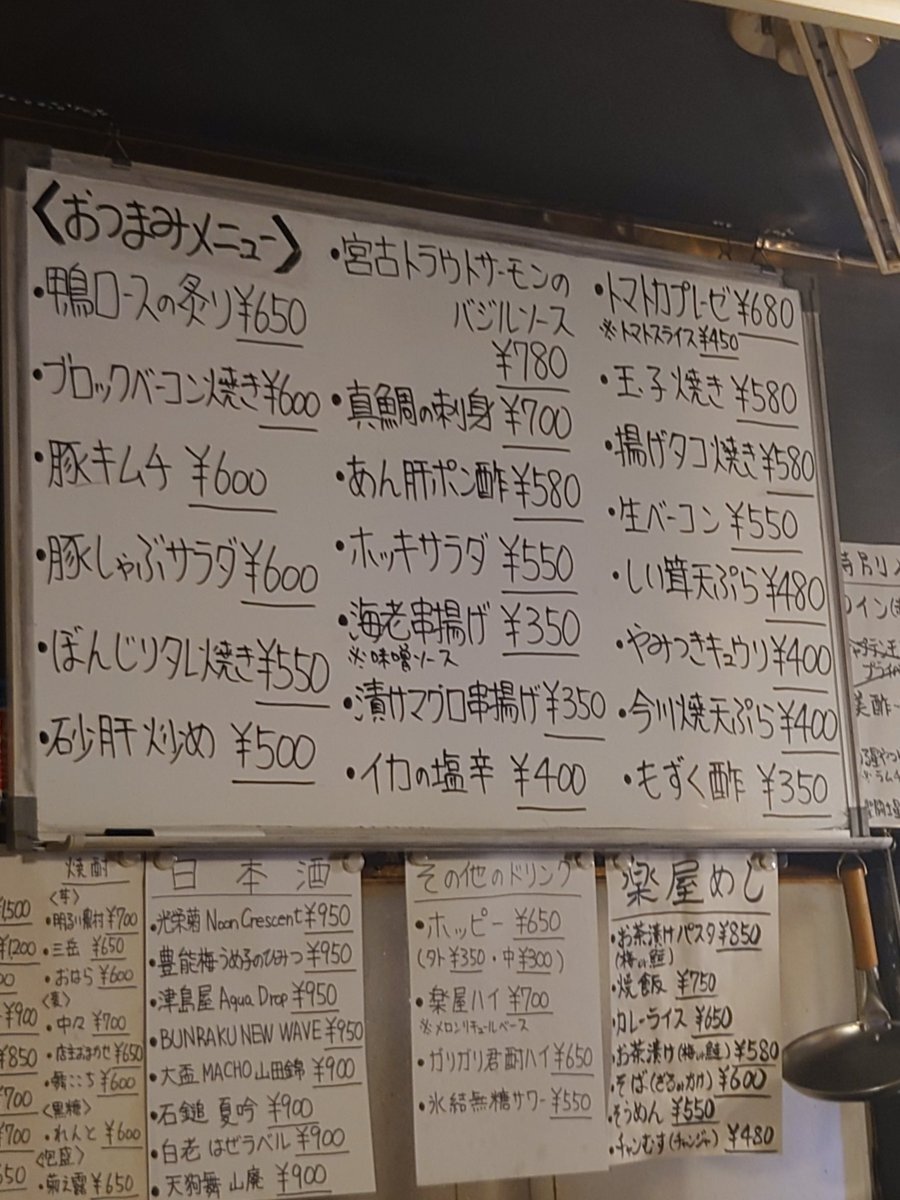 〈おつまみメニュー〉
・鴨ロースの炙り ¥650
・ブロックベーコン焼き ¥600
・豚キムチ ¥600
・豚しゃぶサラダ ¥600
・ぼんじりタレ焼き ¥550
・砂肝炒め ¥500
・宮古トラウトサーモンの
バジルソース
¥780
・真鯛の刺身 ¥700
・あん肝ポン酢 ¥580
・ホッキサラダ ¥550
・海老串揚げ ¥350
※味噌ソース
・漬けマグロ串揚げ ¥350
・イカの塩辛 ¥400
・トマトカプレーゼ ¥680
※トマトスライス ¥450
・玉子焼き ¥580
・揚げタコ焼き ¥580
・生ベーコン ¥550
・しい茸天ぷら ¥480
・やみつきキュウリ ¥400
・今川焼天ぷら ¥400
・もずく酢 ¥350
焼酎
〈芋〉
・明るい農村 ¥700
・三岳 ¥650
・おはら ¥600
〈麦〉
・中々 ¥700
・店主おまかせ ¥650
・舞ここち ¥600
〈黒糖〉
・れんと ¥600
〈泡盛〉
・菊之露 ¥650
日本酒
・光栄菊 Noon Crescent ¥950
・豊能梅 うめ子のひみつ ¥950
・津島屋 Aqua Drop ¥950
・BUNRAKU NEW WAVE ¥950
・大盃 MACHO 山田錦 ¥900
・石鎚 夏吟 ¥900
・白老 はぜラベル ¥900
・天狗舞 山廃 ¥900
その他のドリンク
・ホッピー ¥650
(外 ¥350・中 ¥300)
・楽屋ハイ ¥700
※メロンリキュールベース
・ガリガリ君酎ハイ ¥650
・氷結無糖サワー ¥550
楽屋めし
・お茶漬けパスタ ¥850
(梅or鮭)
・焼飯 ¥750
・カレーライス ¥650
・お茶漬け(梅or鮭) ¥580
・そば(ざるorかけ) ¥600
・そうめん ¥550
・チャンむす(チャンジャ) ¥480